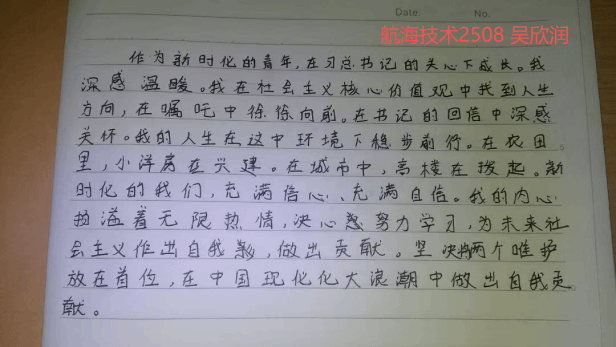 Date.
No.
航海技术2508 吴欣润
作为新时化的青年,在习总书记的关心下成长。我
深感温暖。我在社会主义核心价值观中找到人生
方向,在嘱咤中徐徐向前。在书记的回信中深感
关怀。我的人生在这中环境下稳步前行。在农田
里,小洋房在兴建。在城市中,高楼在拨起。新
时化的我们,充满信心、充满自信。我的内心
溢着无限热情,决心努力学习,为未来社
会主义作出自我,做出贡献。坚决将两个唯护
放在首位,在中国现化化大浪潮中做出自我贡
献。